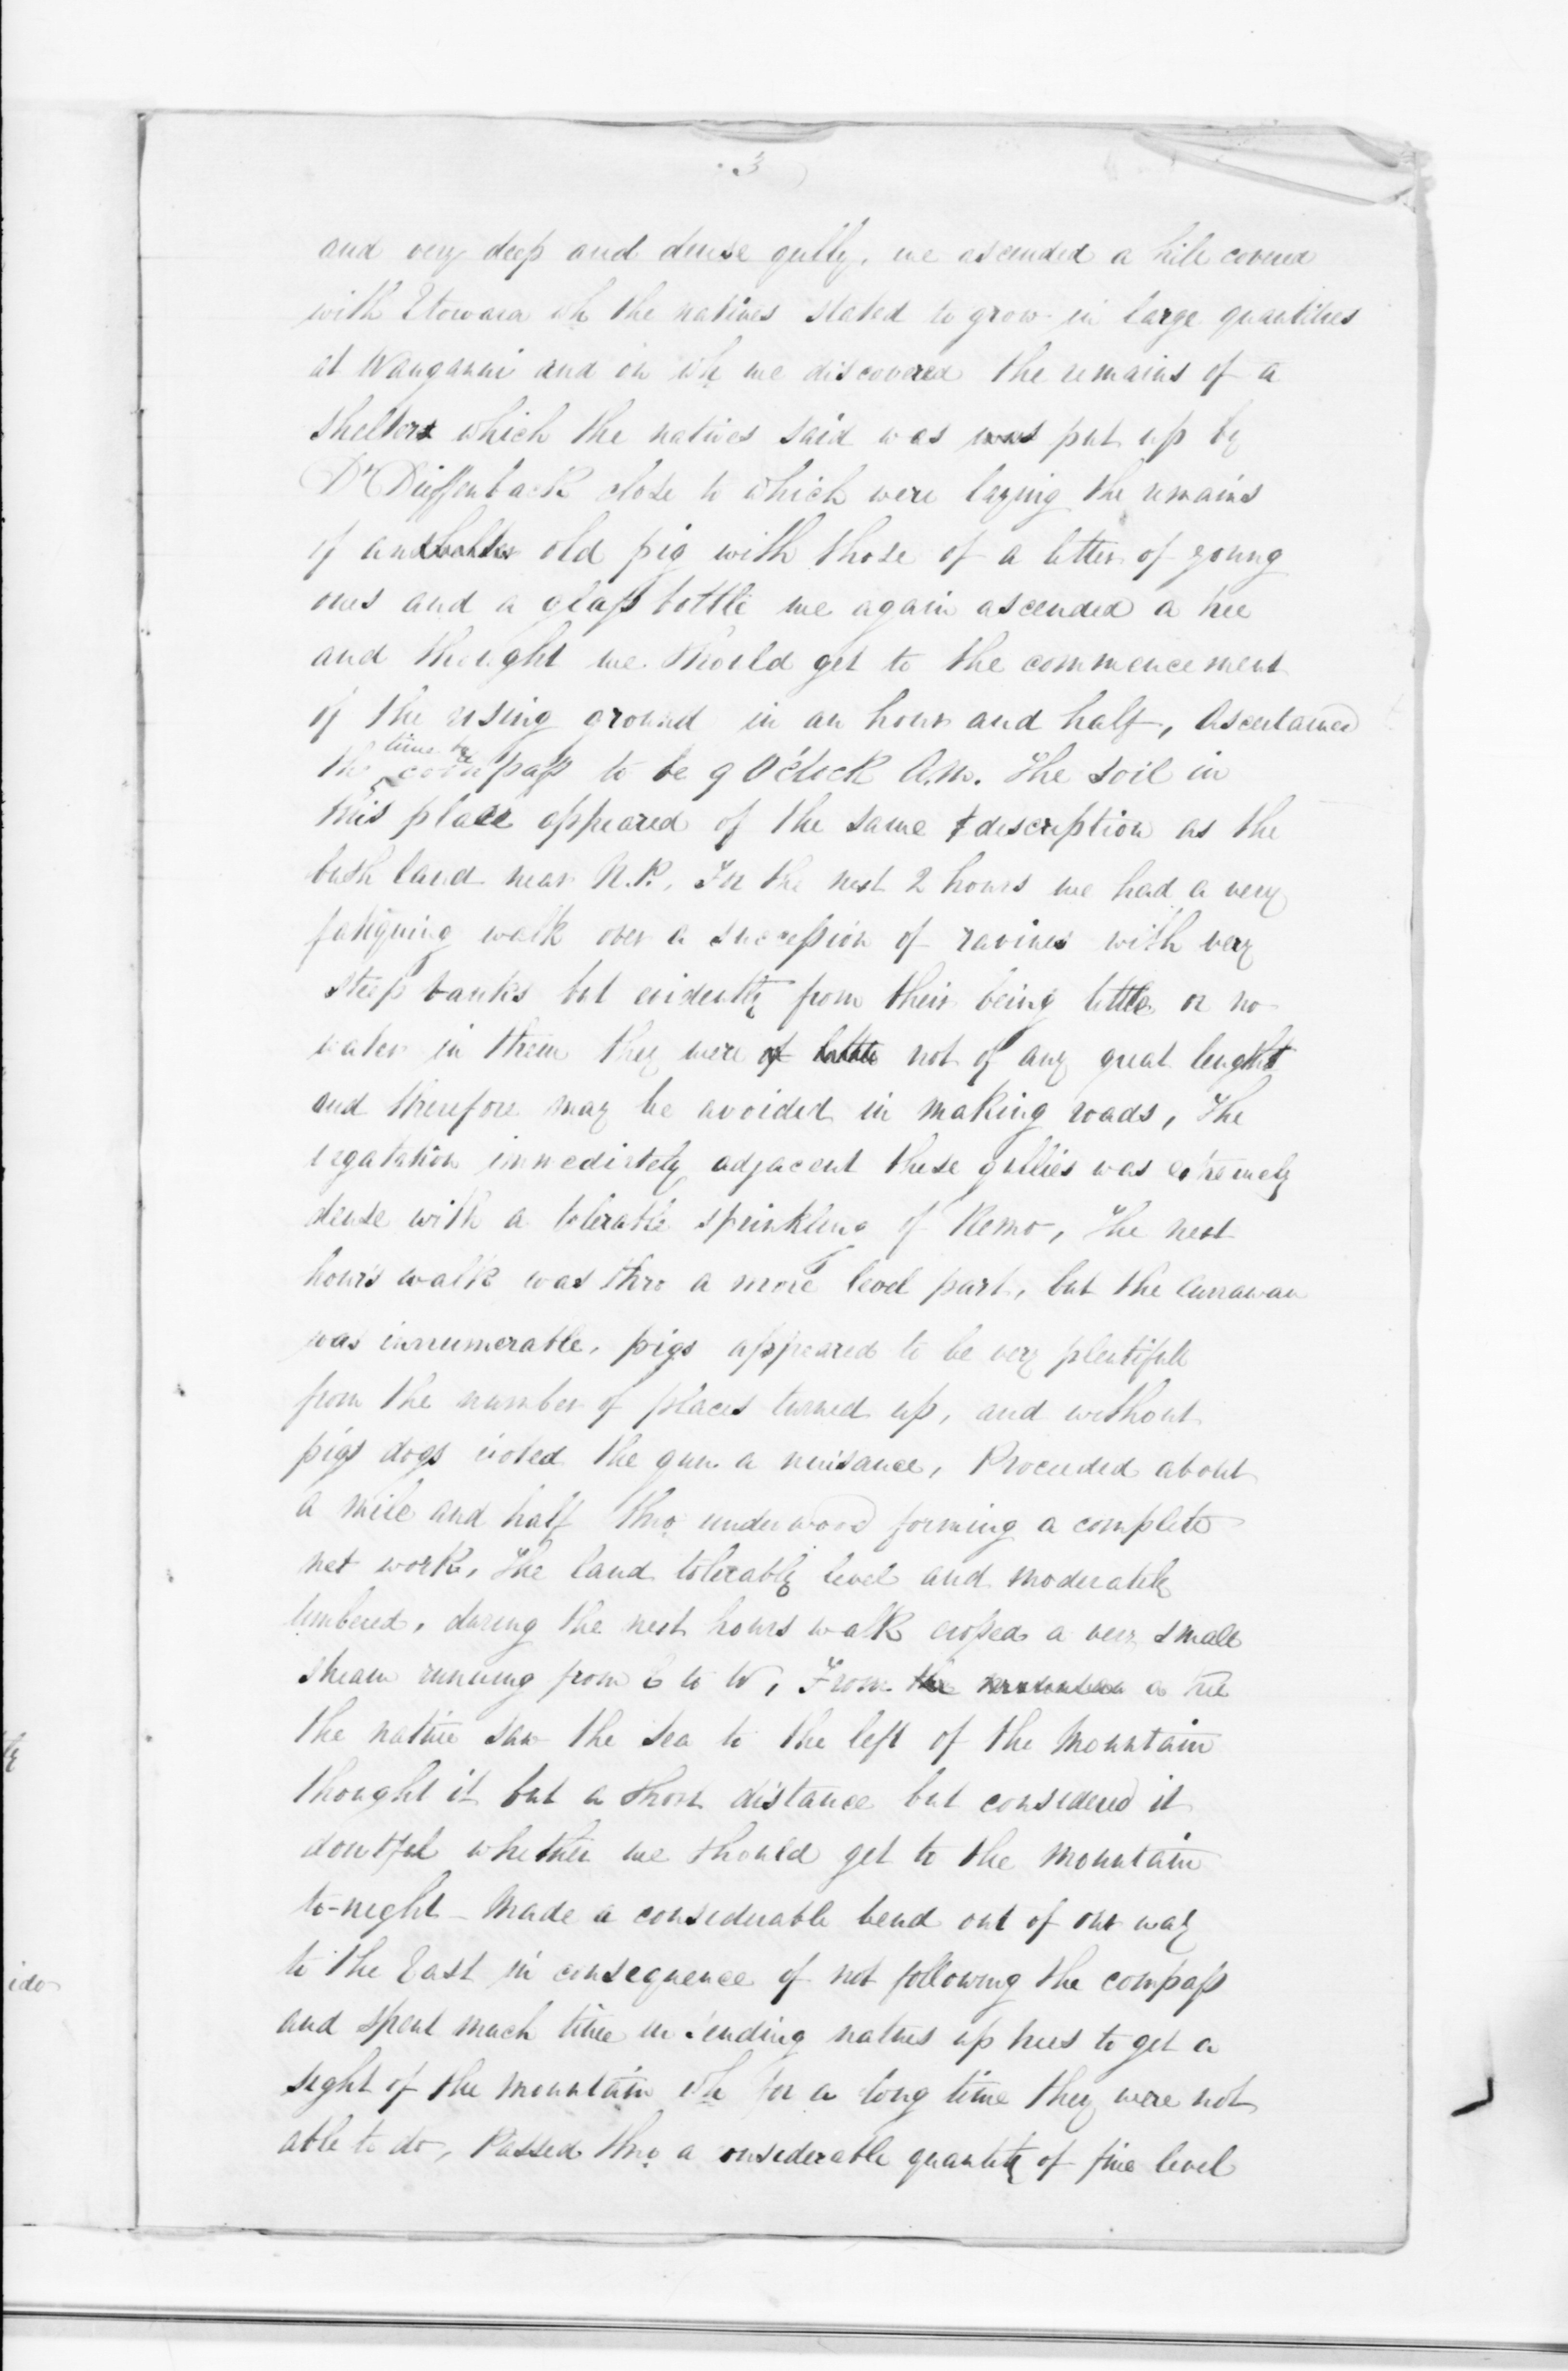 3
and very deep and dense gully, we ascended a hill covered
with Etowara wh the natives stated to grow in large quantities
at Wanganui and in wh we discovered the remains of a
shelter which the natives said was was put up by
Dr Dieffenback close to which were laying the remains
of an old pig with those of a litter of young
ones and a glass bottle we again ascended a tree
and thought we should get to the commencement
of the rising ground in an hour and half, Ascertained
the time by compass to be 9 O'clock A.M. The soil in
this place appeared of the same description as the
bush land near N.P. In the next 2 hours we had a very
fatiguing walk over a succession of ravines with very
steep banks but evidently from their being little or no
water in them they were of little not of any great lenght
and therefore may be avoided in making roads, The
vegatation immediately adjacent these gullies was extremely
dense with a tolerable sprinkling of Remo, The next
hour's walk was thro a more level part, but the
was innumerable, pigs appeared to be very plentifull
from the number of places turned up, and without
pigs dogs voted the gun a nuisance, Proceeded about
a mile and half thro underwood forming a complete
net work, The land tolerably level and moderately
timbered, during the next hours walk crossed a very small
stream running from E to W, From the a tree
the native saw the sea to the left of the Mountain
thought it but a short distance but considered it
doutful whether we should get to the mountain
to-night - Made a considerable bend out of our way
to the East in consequence of not following the compass
and spent much time in sending natives up trees to get a
sight of the mountain wh for a long time they were not
able to do, Passed thro a onsiderable quantity of fine level
ido